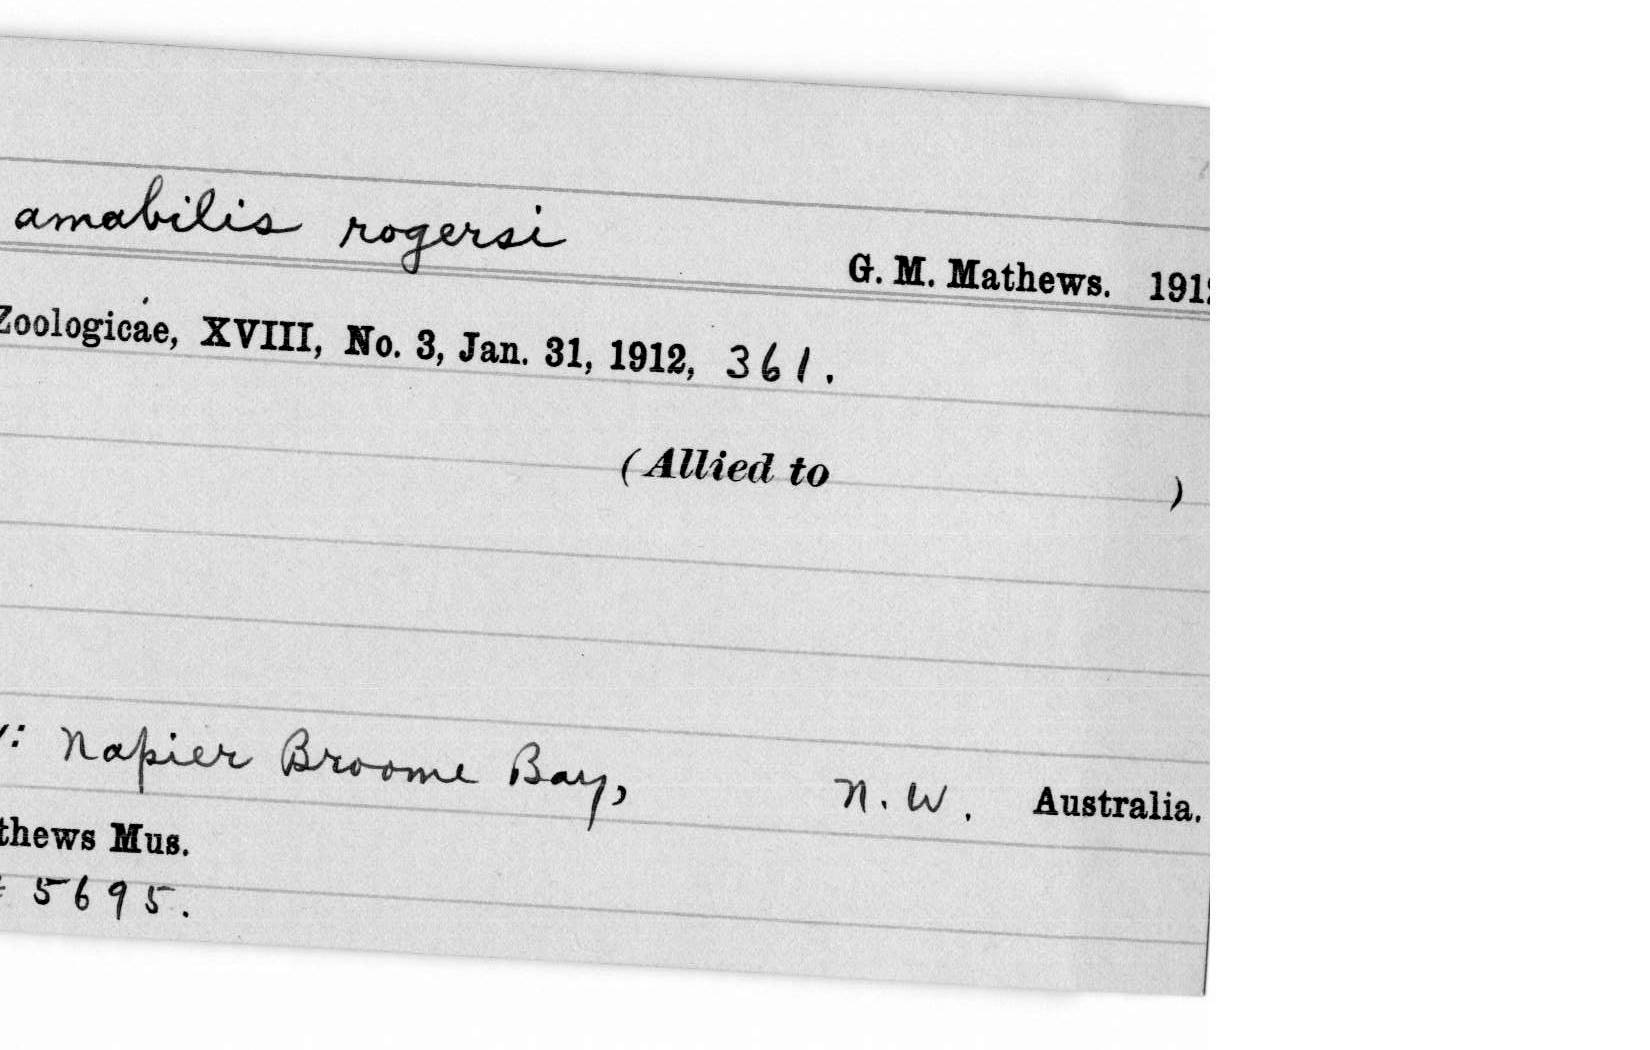 amabilis rogersi
G. M. Mathews. 191
Zoologicae, XVIII, No. 3, Jan. 31, 1912, 361.
(Allied to )
: Napier Broome Bay, N. W. Australia.
thews Mus.
5695.